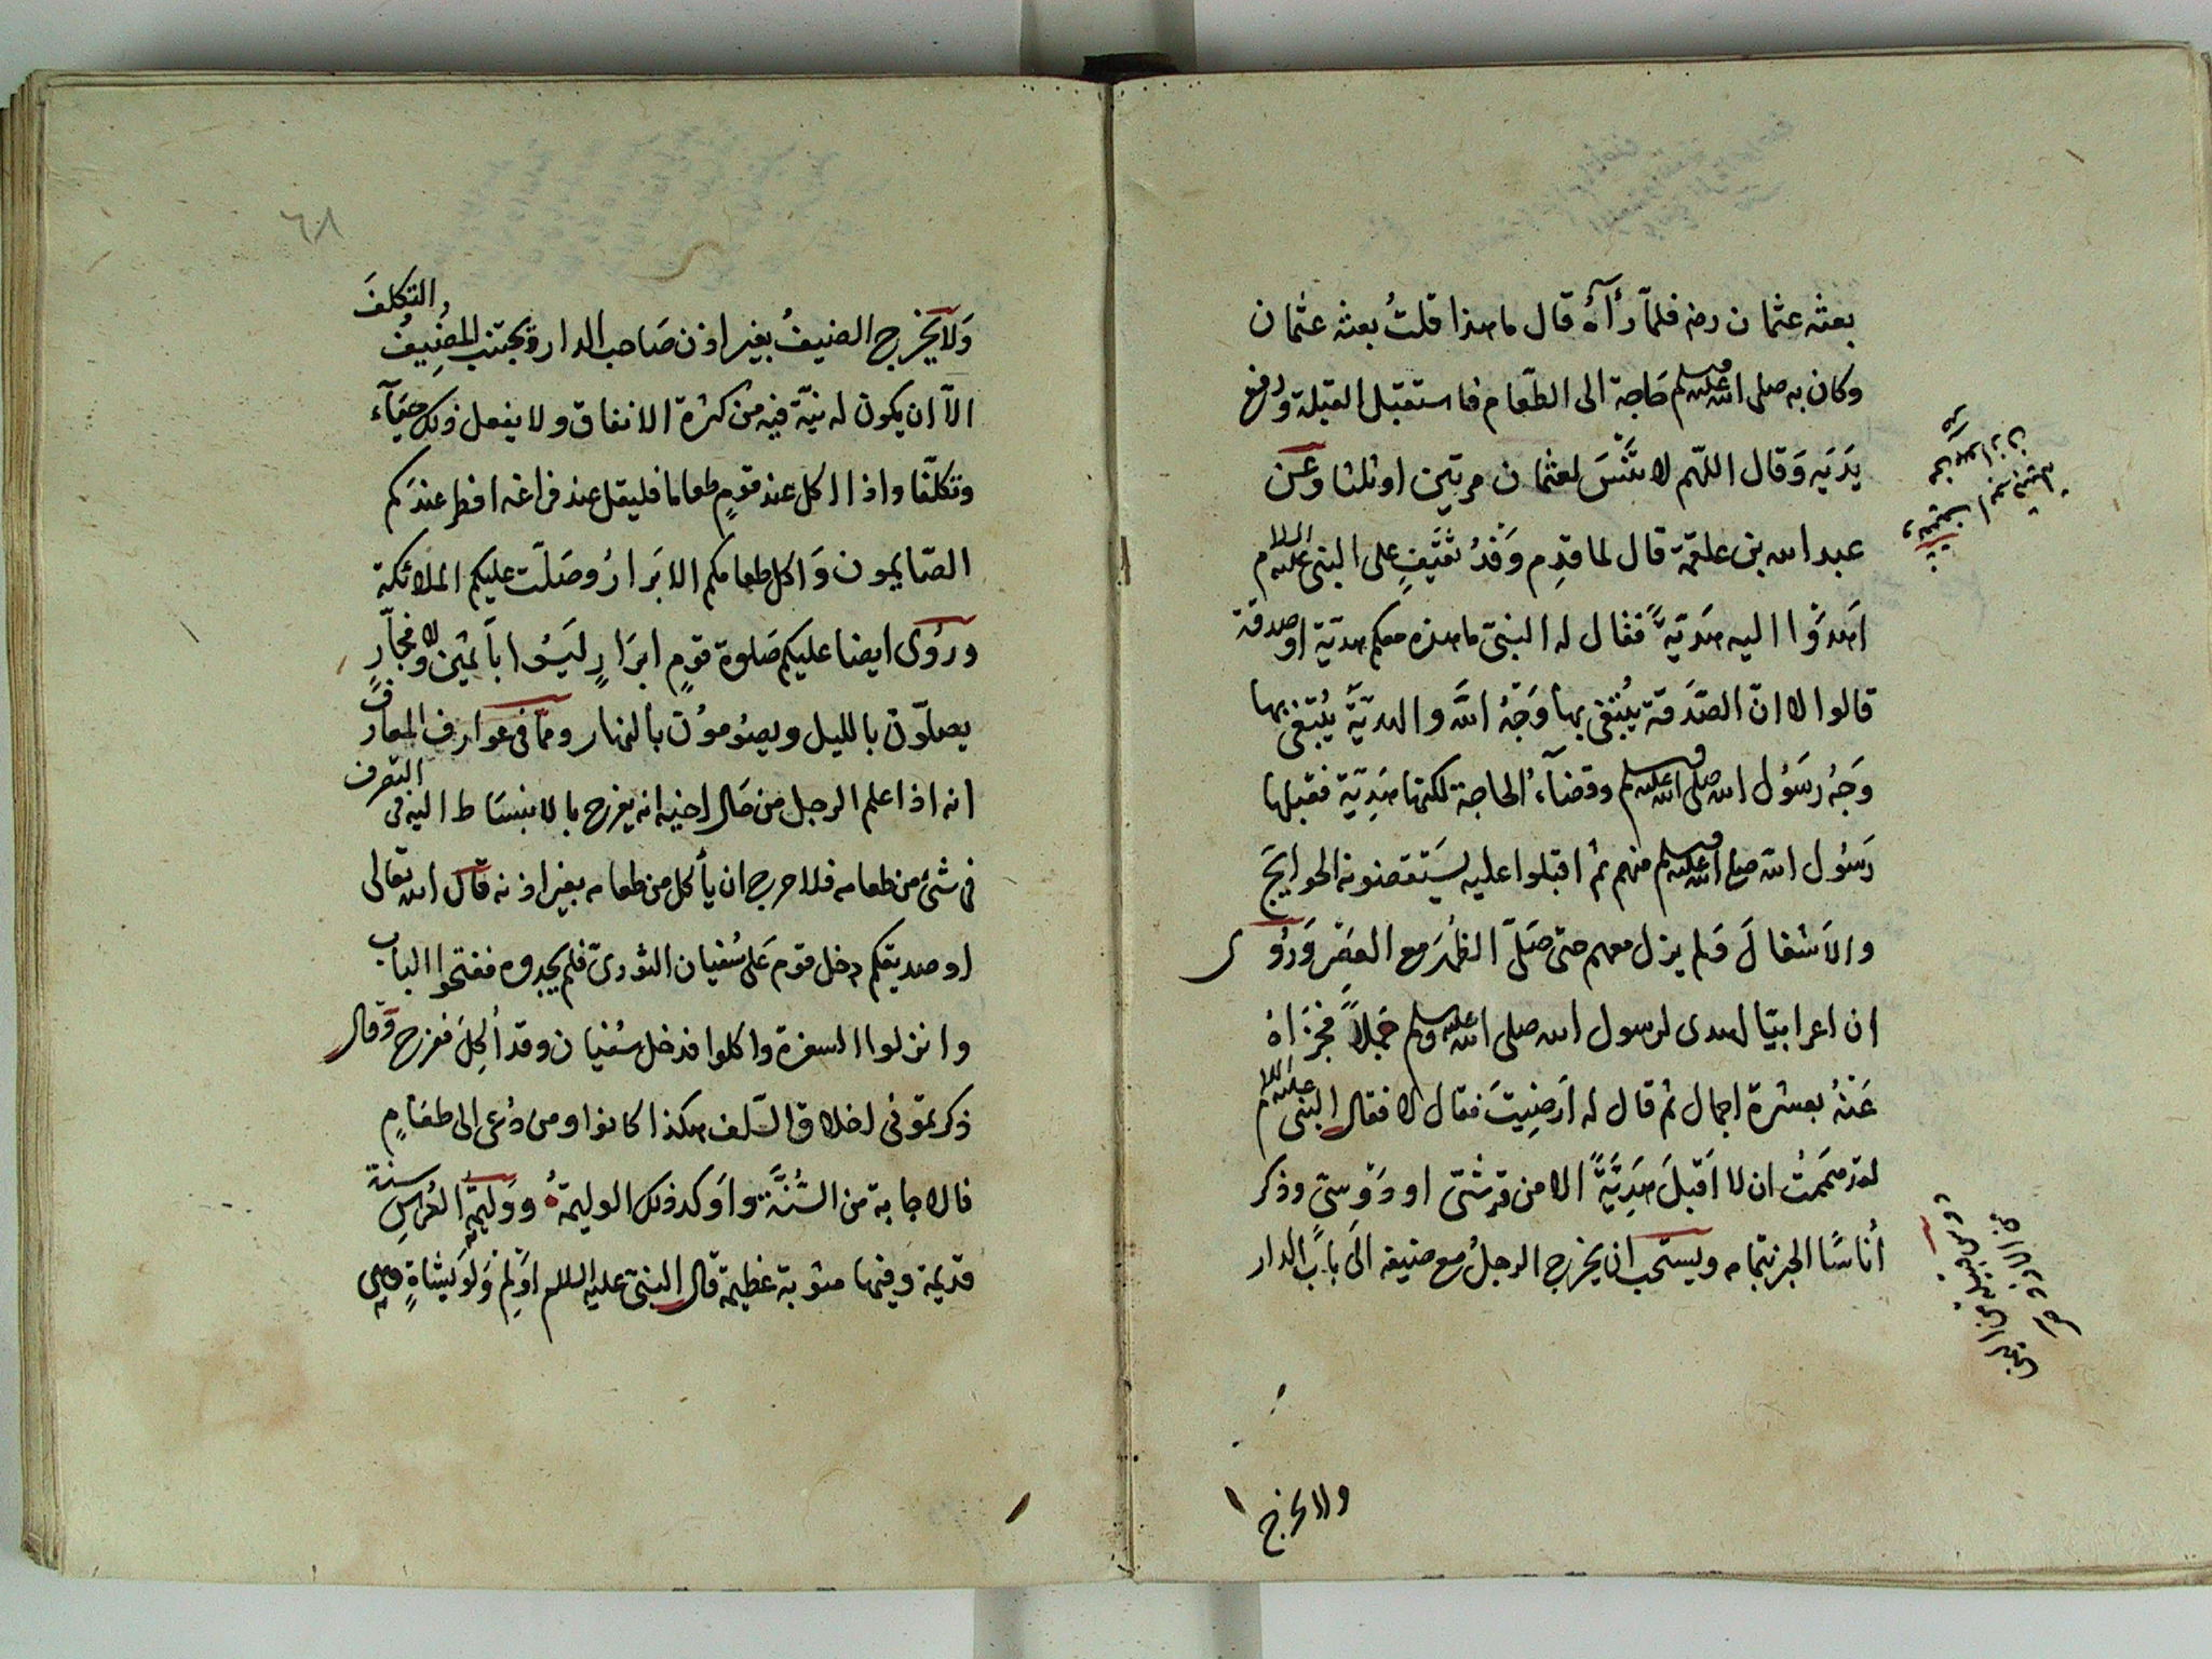 بعثه عثمان رضه فلمّا رأه قال ما هذا قلتُ بعثه عثمان
وكان به صلى الله عليه وسلم حَاجة الى الطّعام فاستقبل القبلة ورفع
يَدَيه وَقال اللّهم لا تَنْسَ لعثمان مرتين او ثلثا وعن
عبد الله بن علقمة قال لما قدِم وَفْدُ ثقَيفٍ على النبى عليه السلام
اَهْدَوْا اليه هَدَيّةً فقال له النبىّ ما هذه معكم هديّة او صدقة
قالوا لا انّ الصّدَقة يُبْتغى بها وَجْهُ اللّه والهديّةَ يُبْتغى بها
وَجْهُ رَسُول الله صلى الله عليه وسلم وقضآء الحاجة لكنها هَدِيّة فقبلها
رَسُول الله صلى الله عليه وسلم منهم ثم اقبلوا عليه يَستقضونه الحوايجَ
والاَشغالَ فَلم يزل معهم حتى صَلّى الظهْرَ مع العصْر وَرُوى
ان اعرابيّا اهدى لرسول الله صلى الله عليه وسلم جَمَلاً فجزَاهُ
عَنْهُ بعشرة اجمال ثم قال له اَرَضِيتَ فقال لا فقال النبى عليه السلام
لقد هَممتُ ان لا اَقبلَ هَدِيَّةً الا من قرشىّ او دَوْسىّ وذكر
أناسًا الخبر بتمامه ويستحب ان يخرج الرجلُ مع ضيفه الَى بابَ الدار
ولا يخرج
٦٨
وَلا يَخرج الضيفُ بغير اذن صَاحب الدار ويجتنب المضِيفُ التكلفَ
الاّ ان يكون له نيّة فيه من كثرة الانفاق ولا يفعل ذلك حيَآء
وتكلّفا واذا اكل عند قومٍ طعاما فليقل عند فراغه افطر عندَكم
الصّايمون وَاكل طعامكم الابَرارُ وصَلّت عليكم الملائكة
ورُوى ايضا عليكم صَلوة قومٍ ابرَارٍ ليَسُوا بآثمين ولا فجّارٍ
يصلّون بالليل ويصُومُون بالنهار وممّا فى عوارف المعارف
انه اذا علم الرجل من حَال اخيه انه يفرح بالانبسَاط اليه فى التصرف
فى شئ من طعامه فلا حرج ان يأكل من طعامه بغير اذنه قال الله تعالى
او صديقكم دخل قوم عَلى سُفيان الثورىّ فلم يجدوه ففتحوا الباب
وانزلوا السفرة واكلوا فدخل سُفيان وقد اُكِلَ ففرح وَقال
ذكرتمونى اخلاق السّلف هكذا كانوا ومن دُعى الى طعَامٍ
فالاجابة من السُّنَّة واَوكد ذلك الوليمةُ ووَليمة العُرسِ سنة
قديمة وفيها مثوبة عظيمة قال النبىّ عليه السلام اَوْلِم وَلَو بشاةٍ وهى